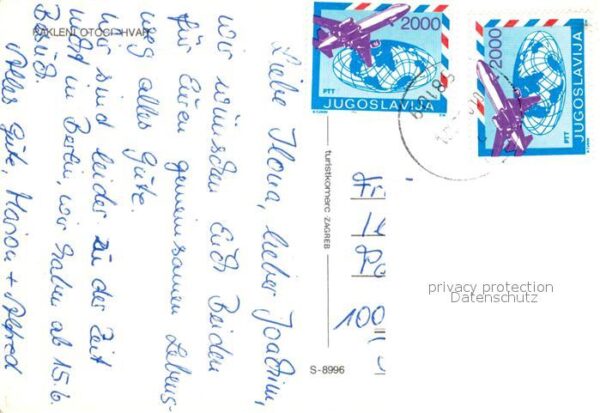 PAKLENI OTOCI - HVAR
Liebe Ilona, lieber Joachim,
wir wünschen Euch Beiden
für Euren gemeinsamen Lebens-
weg alles Gute.
Wir sind leider zu der Zeit
nicht in Berlin, wir haben ab 15.6.
Alles Gute, Marion + Alfred
turistkomerc ZAGREB
S-8996
2000
PTT
JUGOSLAVIJA
2000
PTT
JUGOSLAVIJA
Fr.
100
privacy protection
Datenschutz